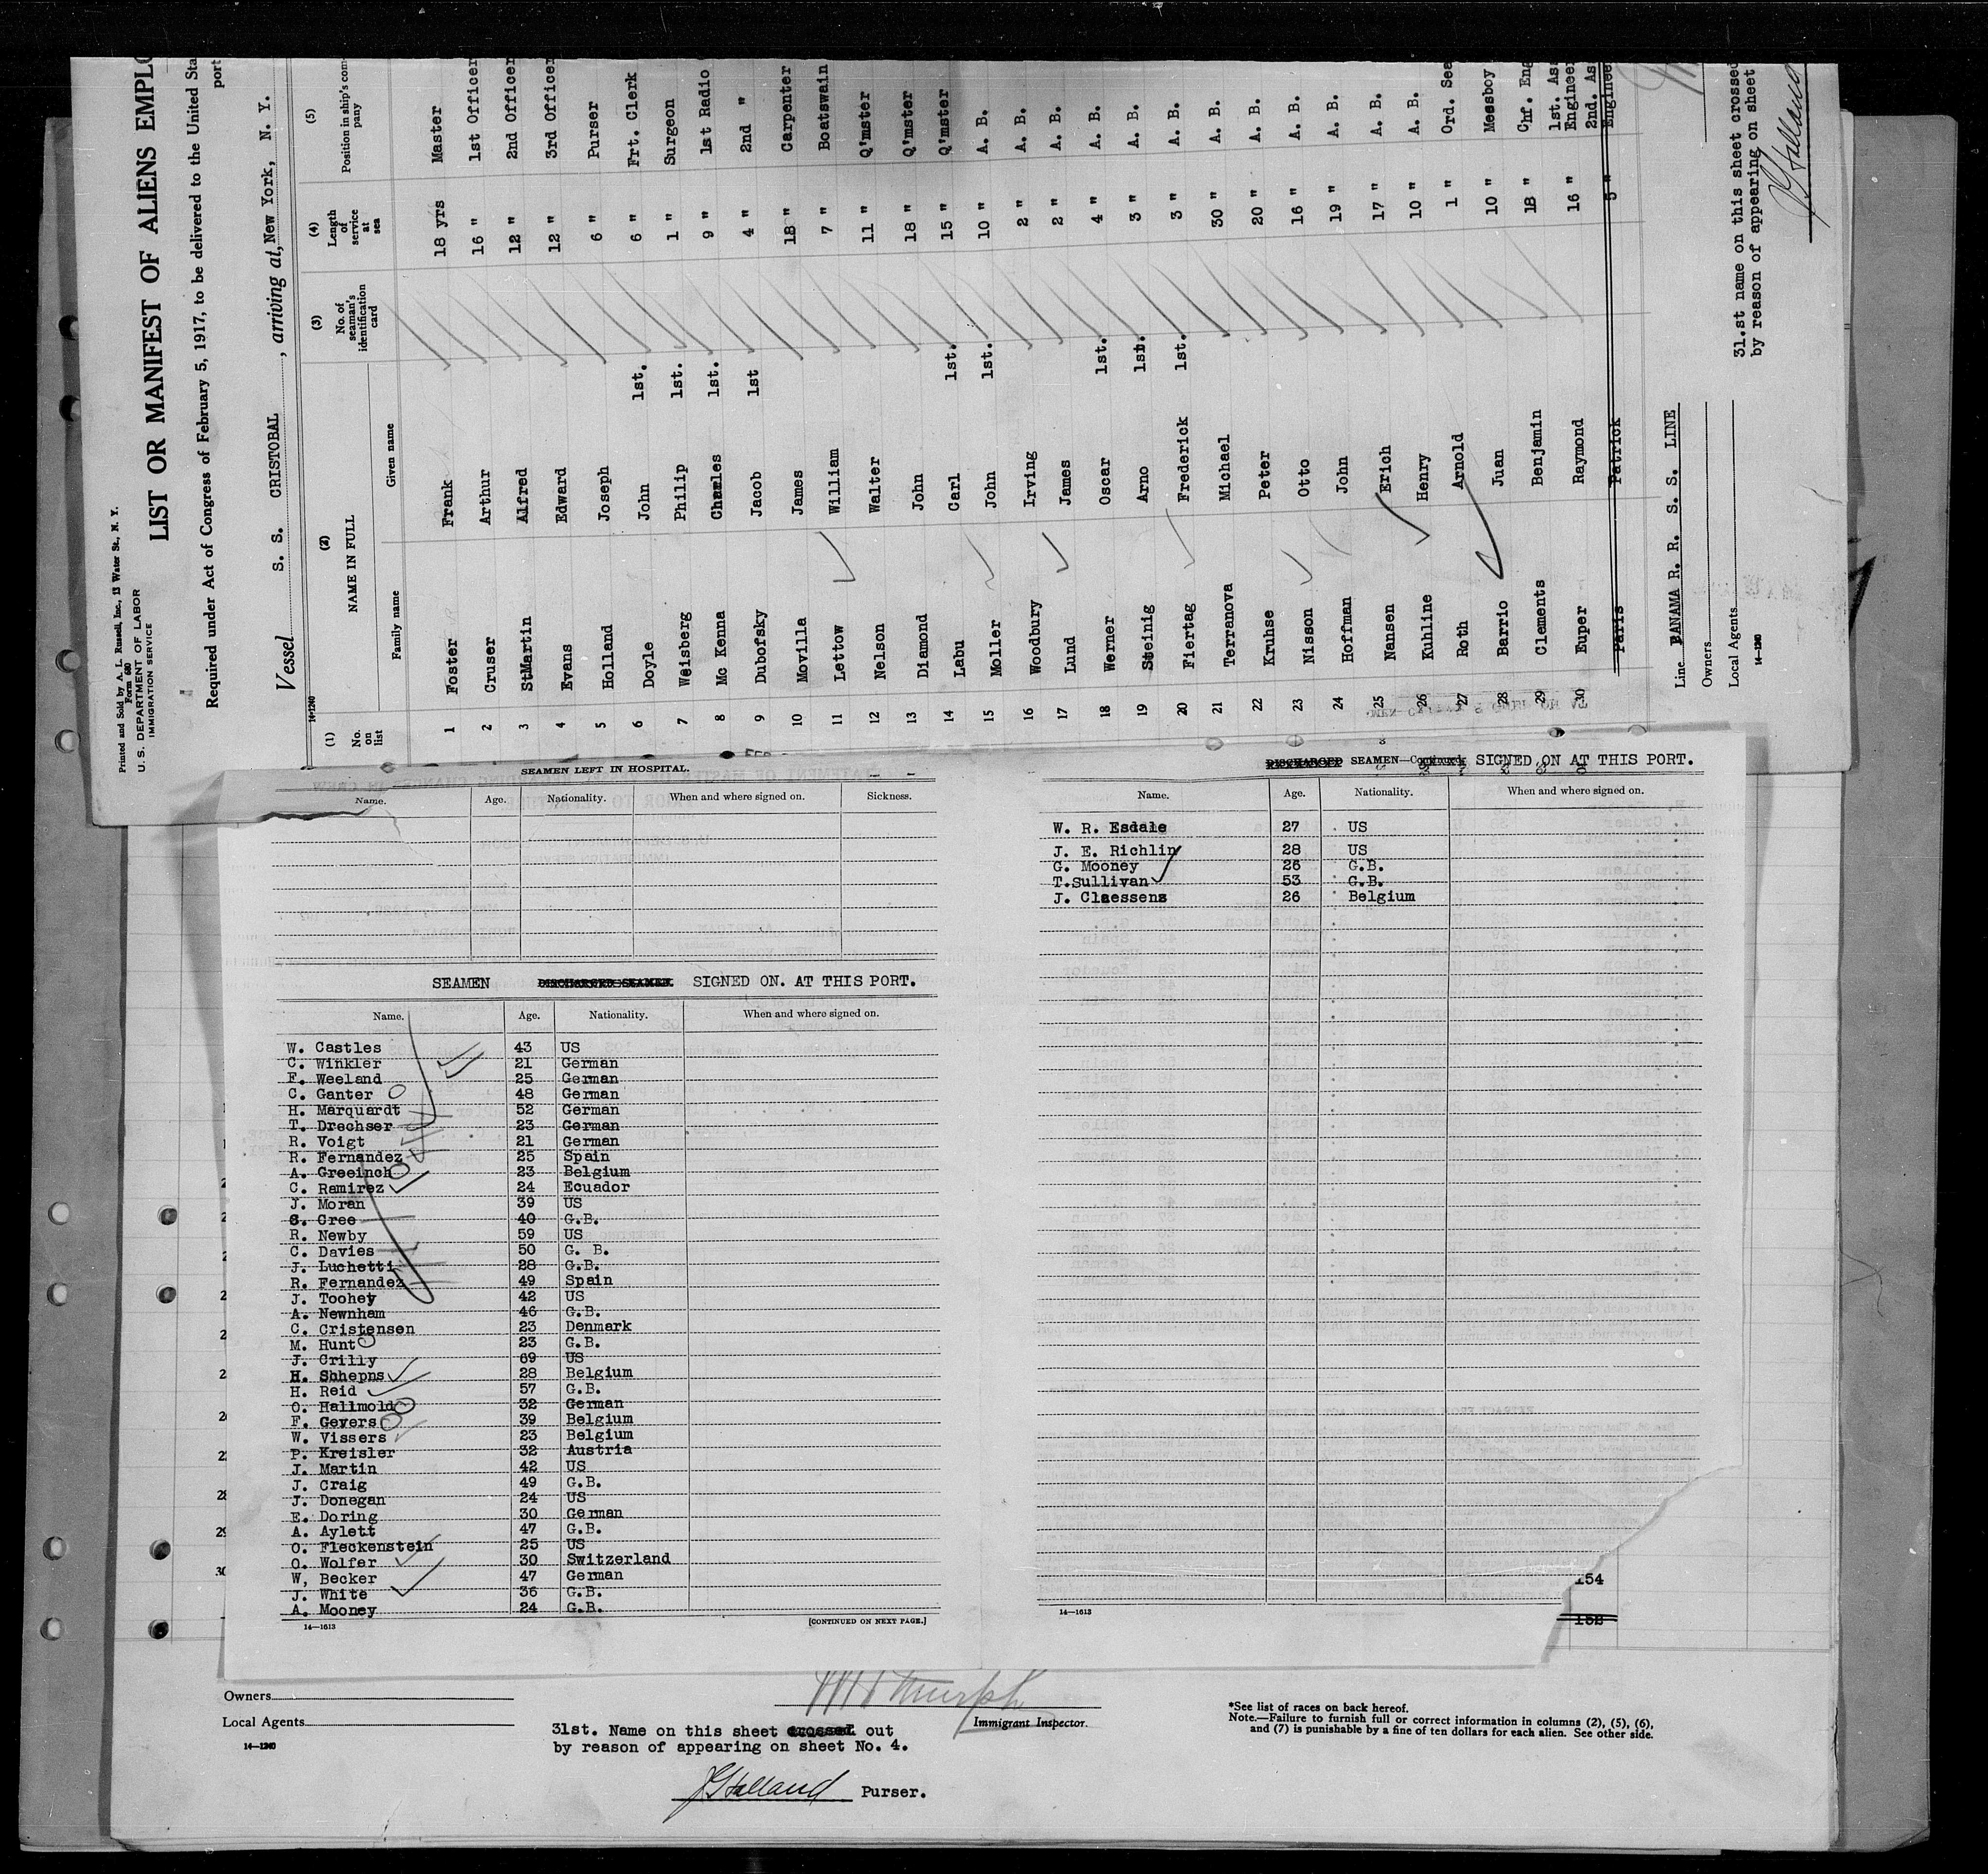 Printed and Sold by A. L. Russell, Inc., 12 Water St., N. Y.
Form 680
U. S. DEPARTMENT OF LABOR
IMMIGRATION SERVICE
LIST OR MANIFEST OF ALIENS EMPLO
Required under Act of Congress of February 5, 1917, to be delivered to the United Sta
port
Vessel S. S. CRISTOBAL, arriving at, New York, N. Y.
14-1240
(1) (2) (3) (4) (5)
No. on list NAME IN FULL No. of seaman's identification card Length of service at sea Position in ship's company
Family name Given name
1 Foster Frank 18 yrs Master
2 Cruser Arthur 16 " 1st Officer
3 StMartin Alfred 12 " 2nd Officer
4 Evans Edward 12 " 3rd Officer
5 Holland Joseph 6 " Purser
6 Doyle John 1st. 6 " Frt. Clerk
7 Weisberg Philip 1st. 1 " Surgeon
8 Mc Kenna Charles 1st. 9 " 1st Radio
9 Dubofsky Jacob 1st 4 " 2nd "
10 Movilla James 18 " Carpenter
11 Lettow William 7 " Boatswain
12 Nelson Walter 11 " Q'mster
13 Diamond John 18 " Q'mster
14 Labu Carl 1st. 15 " Q'mster
15 Moller John 1st. 10 " A. B.
16 Woodbury Irving 2 " A. B.
17 Lund James 2 " A. B.
18 Werner Oscar 1st. 4 " A. B.
19 Steinig Arno 1st. 3 " A. B.
20 Fiertag Frederick 1st. 3 " A. B.
21 Terranova Michael 30 " A. B.
22 Kruhse Peter 20 " A. B.
23 Nisson Otto 16 " A. B.
24 Hoffman John 19 " A. B.
25 Nansen Erich 17 " A. B.
26 Kuhline Henry 10 " A. B.
27 Roth Arnold 1 " Ord. Sea
28 Barrio Juan 10 " Messboy
29 Clements Benjamin 18 " Chf. Eng
30 Euper Raymond 16 " 1st. As Engineer
Paris Patrick 5 " 2nd. As Engineer
Line PANAMA R. R. S. S. LINE
Owners
Local Agents
14-1240
31.st name on this sheet crossed
by reason of appearing on sheet
JHolland
SEAMEN LEFT IN HOSPITAL.
Name. Age. Nationality. When and where signed on. Sickness.
SEAMEN DISCHARGED SEAMEN. SIGNED ON. AT THIS PORT.
Name. Age. Nationality. When and where signed on.
W. Castles 43 US
C. Winkler 21 German
F. Weeland 25 German
C. Ganter 48 German
H. Marquardt 52 German
T. Drechser 23 German
R. Voigt 21 German
R. Fernandez 25 Spain
A. Greeinch 23 Belgium
C. Ramirez 24 Ecuador
J. Moran 39 US
S. Cree 40 G.B.
R. Newby 59 US
C. Davies 50 G. B.
J. Luchetti 28 G.B.
R. Fernandez 49 Spain
J. Toohey 42 US
A. Newnham 46 G.B.
C. Cristensen 23 Denmark
M. Hunt 23 G.B.
J. Crilly 69 US
H. Shhepns 28 Belgium
H. Reid 57 G.B.
O. Hallmold 32 German
F. Gevers 39 Belgium
W. Vissers 23 Belgium
P. Kreisler 32 Austria
J. Martin 42 US
J. Craig 49 G.B.
J. Donegan 24 US
E. Doring 30 German
A. Aylett 47 G.B.
O. Fleckenstein 25 US
O. Wolfer 30 Switzerland
W, Becker 47 German
J. White 36 G.B.
A. Mooney 24 G.B.
14—1613
[CONTINUED ON NEXT PAGE.]
DISCHARGED SEAMEN—Continued. SIGNED ON AT THIS PORT.
Name. Age. Nationality. When and where signed on.
W. R. Esdale 27 US
J. E. Richlin 28 US
G. Mooney 26 G.B.
T.Sullivan 53 G.B.
J. Claessens 26 Belgium
14—1613
154
152
Owners
Local Agents
14-1240
31st. Name on this sheet crossed out
by reason of appearing on sheet No. 4.
JHolland Purser.
Immigrant Inspector.
*See list of races on back hereof.
Note.—Failure to furnish full or correct information in columns (2), (5), (6),
and (7) is punishable by a fine of ten dollars for each alien. See other side.